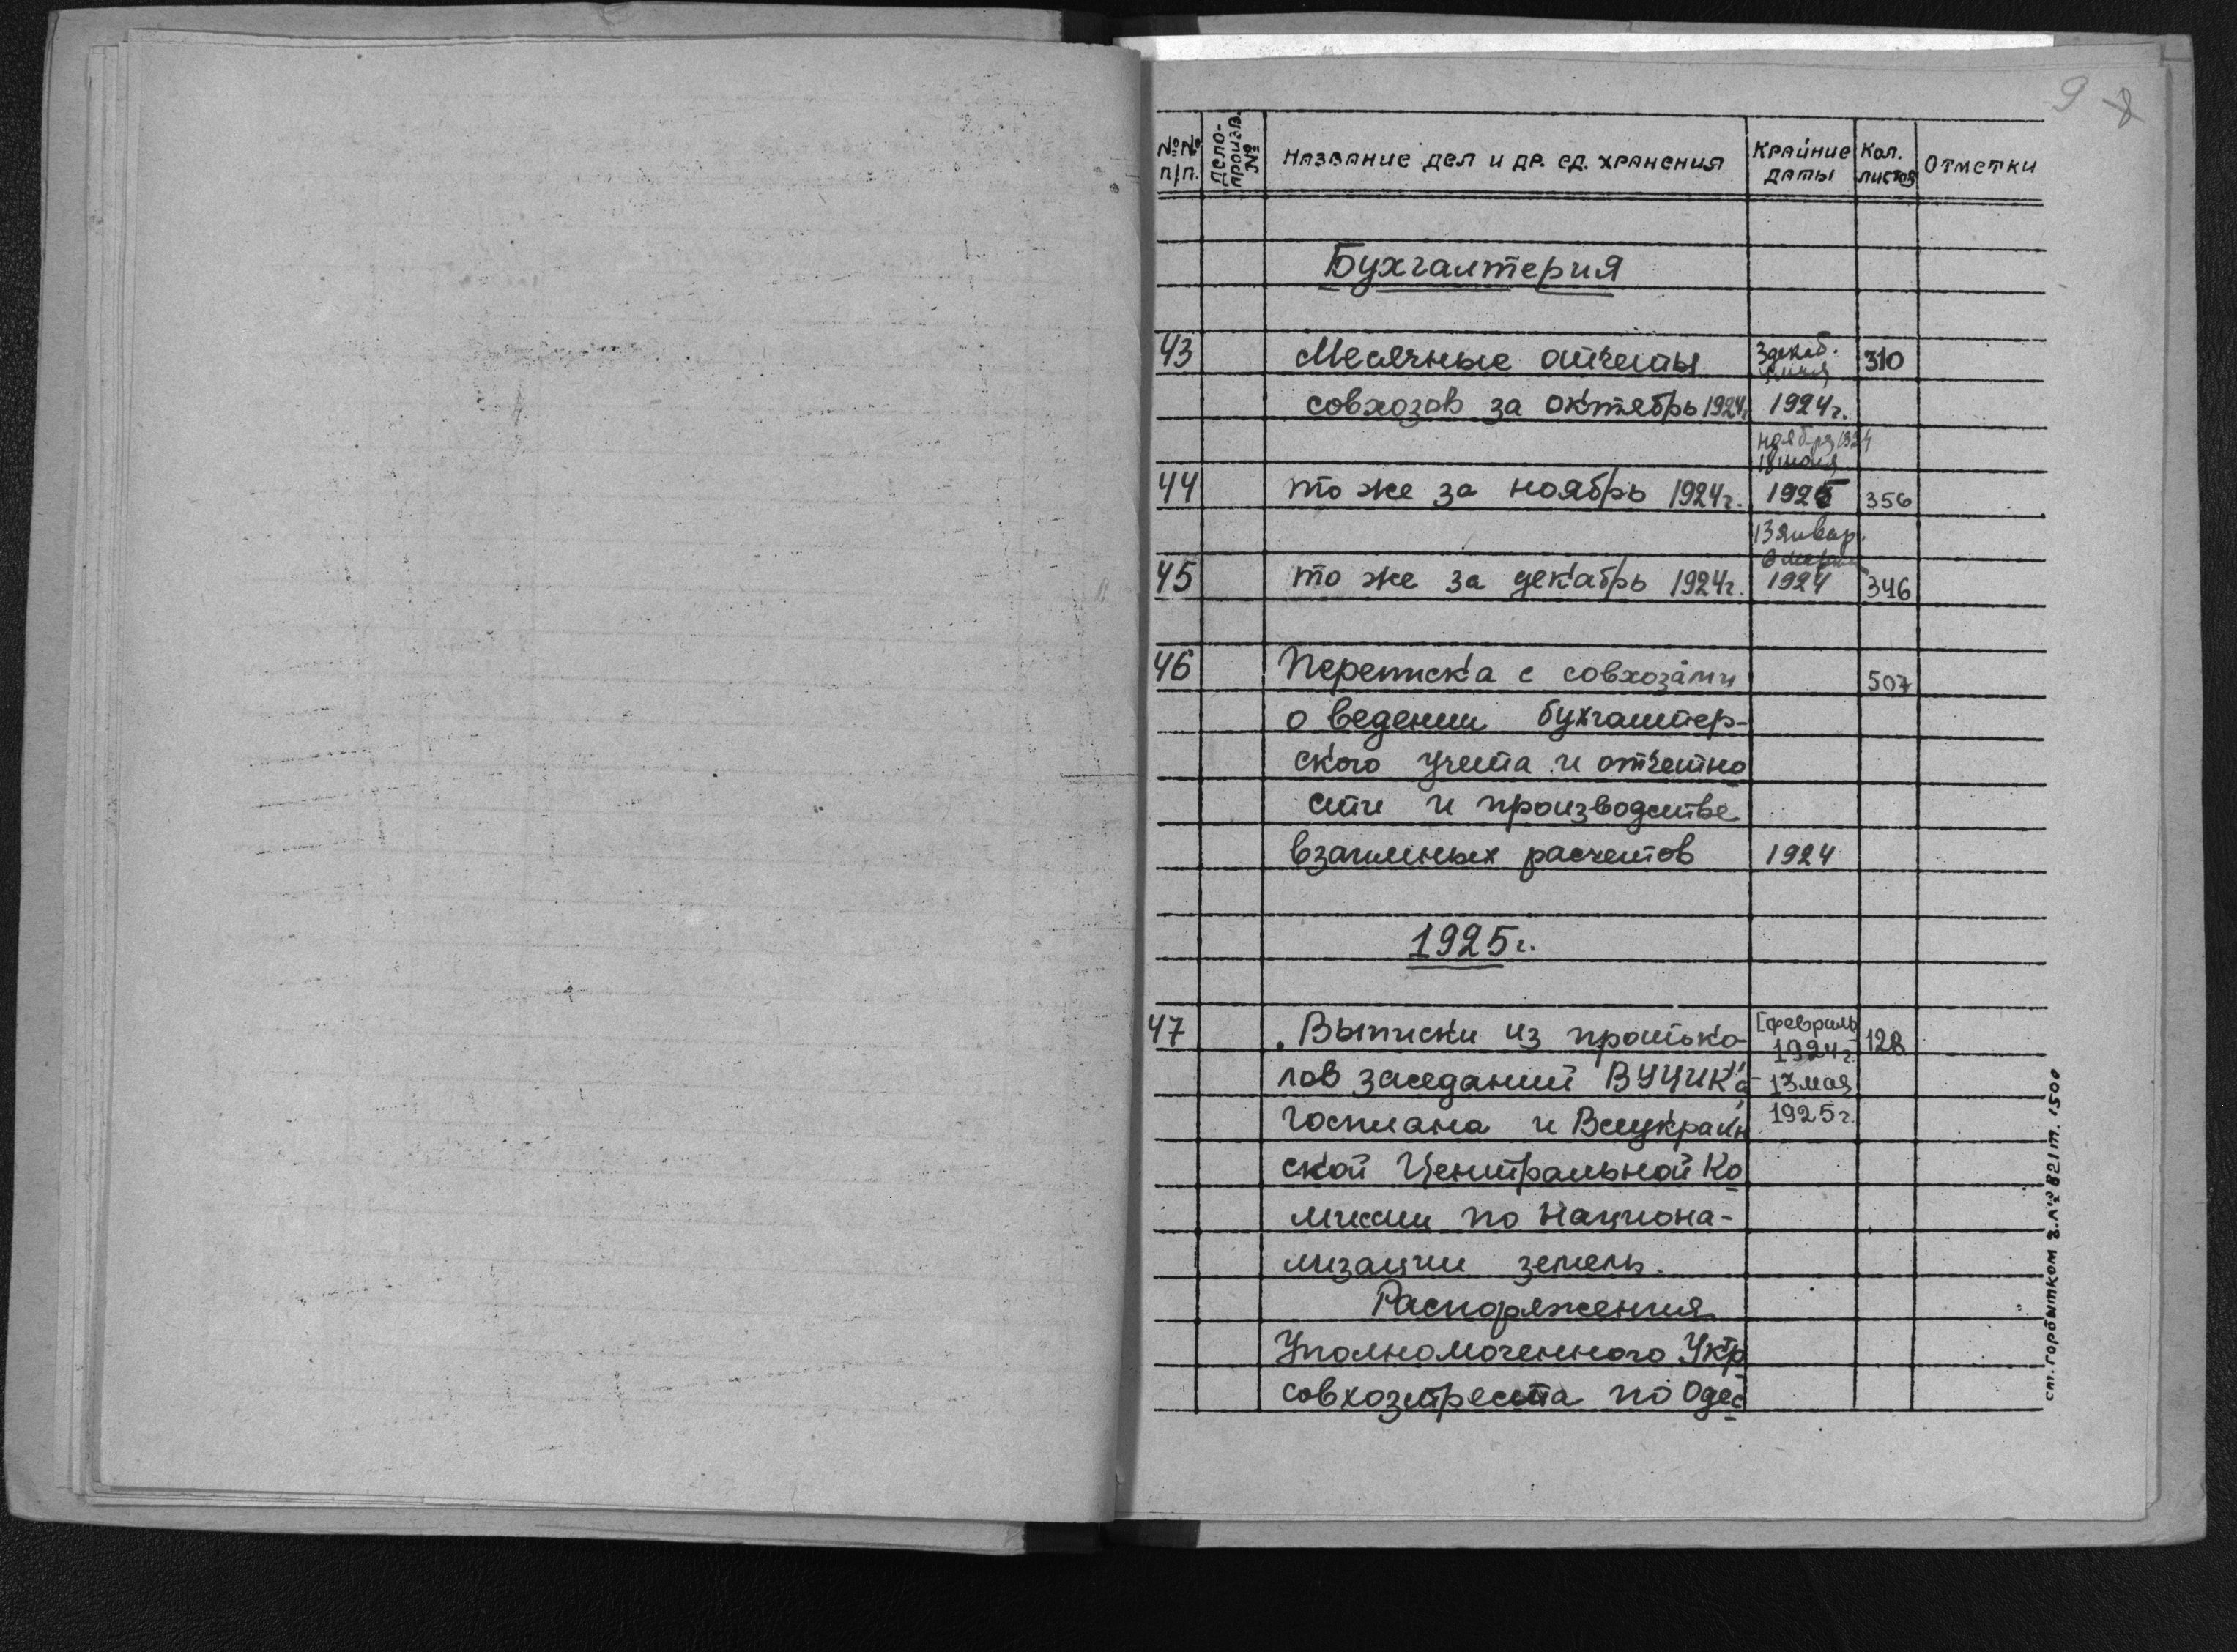 9 8
№№ п/п. Дело-произв. № Название дел и др. ед. хранения Крайние даты Кол. листов Отметки
Бухгалтерия
43 Месячные отчеты 3 декаб. 310
совхозов за октябрь 1924г. 1924г.
ноябрь 1924
18 июля
44 то же за ноябрь 1924г. 1925 356
13 январ.
6 марта
45 то же за декабрь 1924г. 1924 346
46 Переписка с совхозами 507
о ведении бухгалтер-
ского учета и отчетно
сти и производстве
взаимных расчетов 1924
1925г.
47 Выписки из протоко- [февраль 128
1924г.
лов заседаний ВУЦИК"а - 13 мая
Госплана и Всеукраин 1925г.
ской Центральной Ко
миссии по национа-
лизации земель.
Распоряжения
Уполномоченного Укр
совхозтреста по Одес
ст. горбытком з. № 821 т. 1500